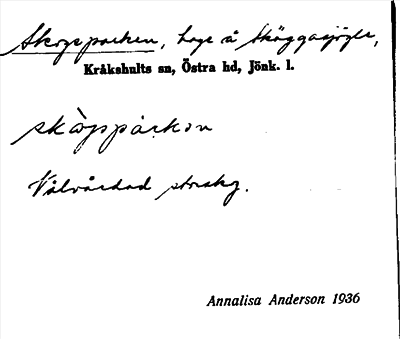 Skogsparken, hage å Skäggasjögle,
Kråkshults sn, Östra hd, Jönk. l.
skògspàrkɔn
Välvårdad strukg.
Annalisa Anderson 1936